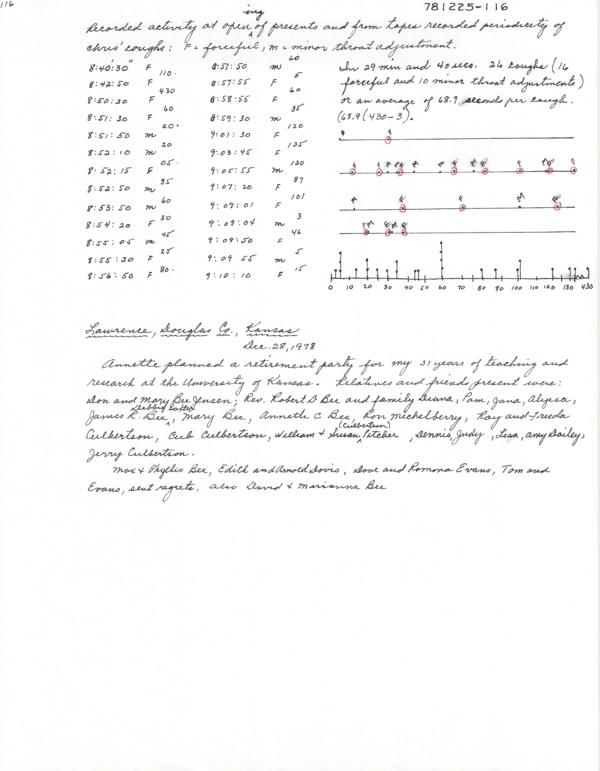 116
781225-116
Recorded activity at opening of presents and from tapes recorded periodicity of
chris' coughs: F = forceful, m = minor throat adjustment.
8:40'30" F 8:57:50 m 60
110
8:42:50 F 8:57:55 F 5
430
8:50:30 F 8:58:55 F 60
60
8:51:30 F 8:59:30 m 35
20
8:51:50 m 9:01:30 F 120
20
8:52:10 m 9:03:45 F 135
05
8:52:15 F 9:05:55 m 130
35
8:52:50 m 9:07:20 F 87
60
8:53:50 m 9:09:01 F 101
30
8:54:20 F 9:09:04 m 3
45
8:55:05 m 9:09:50 F 46
25
8:55:30 F 9:09 55 m 5
80
8:56:50 F 9:10:10 F 15
In 29 min and 40 sec. 26 coughs (16
forceful and 10 minor throat adjustments)
or an average of 68.9 seconds per cough.
(68.9 (430-3).
0 10 20 30 40 50 60 70 80 90 100 110 120 130 430
Lawrence, Douglas Co., Kansas
Dec. 28, 1978
Annette planned a retirement party for my 31 years of teaching and
research at the University of Kansas. Relatives and friends present were:
Don and Mary Bee Jensen, Rev. Robert D Bee and family Deuna, Pam, Jana, Alysia,
James R. Bee, Mary Bee, Annette C Bee, Ron Michelberry, Ray and Freeda
Culbertson, Cub Culbertson, William & Susan (Culbertson) Pitcher, Dennis, Judy, Lesa, Amy Dailey,
Jerry Culbertson.
Max & Phyllis Bee, Edith and Arnold Davis, Dave and Romona Evans, Tom and
Evans, sent regrets. also David & Marianna Bee